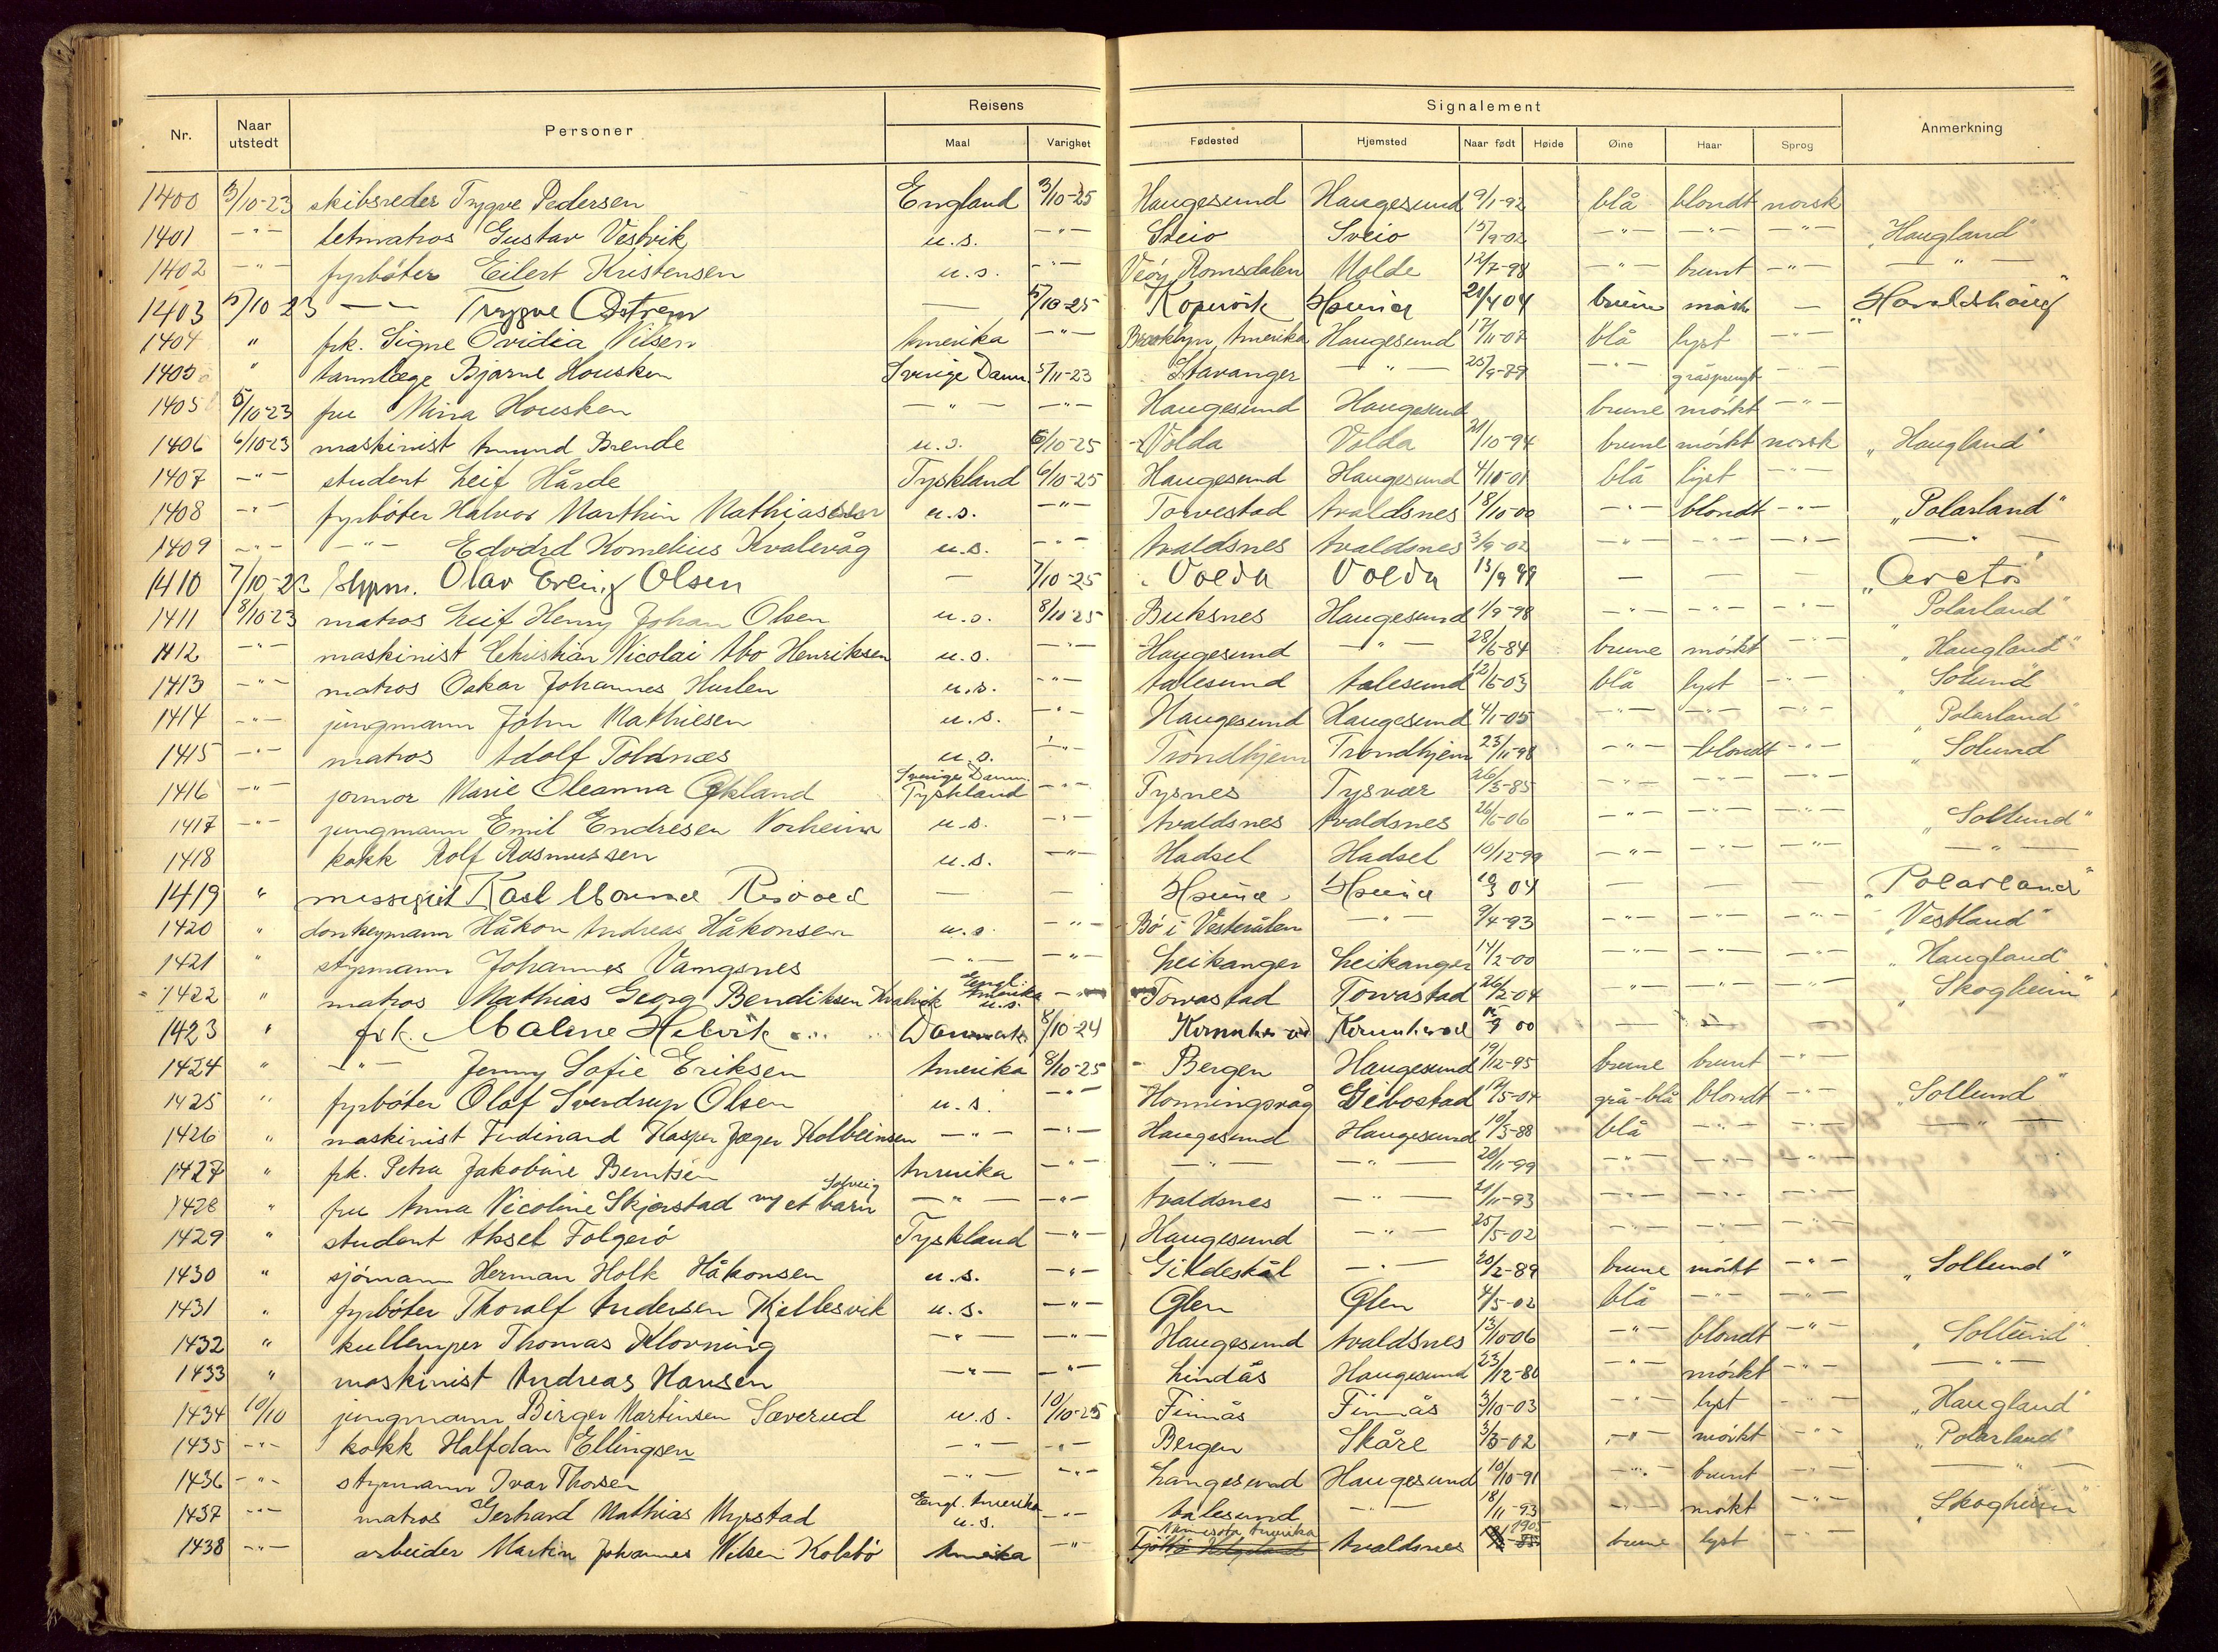 Nr. Naar utstedt Personer Reisens Maal Varighet Signalement Fødested Hjemsted Naar født Høide Øine Haar Sprog Anmerkning
1400 3/10-23 skibsreder Trygve Pedersen England 3/10-25 Haugesund Haugesund 9/1-92 blå blondt norsk
1401 -"- letmatros Gustav Vestvik u.s. -"- Sveio Sveio 15/9-02 -"- -"- -"- "Haugland"
1402 -"- fyrbøter Eilert Kristensen u.s. -"- Veøy Romsdalen Molde 12/7-98 -"- brunt -"- -"-
1403 5/10 23 — Trygve Østrem — 5/10-25 Kopervik Hsund 21/4 04 brune mørk — "Haraldshaug"
1404 " frk. Signe Ovidia Nilsen Amerika -"- Brooklyn, Amerika Haugesund 17/11-07 blå lyst -"-
1405 " tannlæge Bjarne Housken Sverige Danm. 5/11-23 Stavanger -"- 25/9-89 -"- gråsprengt -"-
1405 5/10-23 fru Mina Housken -"- -"- Haugesund Haugesund brune mørkt -"-
1406 6/10-23 maskinist Amund Brende u.s. 6/10-25 Volda Volda 21/10-94 brune mørkt norsk "Haugland"
1407 -"- student Leif Hårde Tyskland 6/10-25 Haugesund Haugesund 4/10-01 blå lyst -"-
1408 -"- fyrbøter Halvor Marthin Mathiassen u.s. -"- Torvestad Avaldsnes 18/10-00 -"- blondt -"- "Polarland"
1409 -"- -"- Edvard Kornelius Kvalevåg u.s. -"- Avaldsnes Avaldsnes 3/9-02 -"- -"- -"- -"-
1410 7/10-23 stypm. Olav Erling Olsen — 7/10-25 Volda Volda 13/9 99 — — — "Arctos"
1411 8/10-23 matros Leif Henry Johan Olsen u.s. 8/10-25 Buksnes Haugesund 1/9-98 -"- -"- -"- "Polarland"
1412 -"- maskinist Christian Nicolai Abo Henriksen u.s. -"- Haugesund -"- 28/6-84 brune mørkt -"- "Haugland"
1413 -"- matros Oskar Johannes Hurlen u.s. -"- Aalesund Aalesund 12/6-03 blå lyst -"- "Solund"
1414 -"- jungmann John Mathiesen u.s. -"- Haugesund Haugesund 4/1-05 -"- -"- -"- "Polarland"
1415 -"- matros Adolf Toldnæs u.s. -"- Trondhjem Trondhjem 23/11-98 -"- blondt -"- "Solund
1416 -"- jormor Marie Oleanna Økland Sverige Danm. Tyskland -"- Tysnes Tysvær 26/3-85 -"- -"- -"-
1417 -"- jungmann Emil Endresen Norheim u.s. -"- Avaldsnes Avaldsnes 26/6-06 -"- -"- -"- "Sollund"
1418 kokk Rolf Rasmussen u.s. -"- Hadsel Hadsel 10/12-99 -"- -"- -"- -"-
1419 " messegut Karl — — Hsund Hsund 10/3 04 — — — "Polarland"
1420 " donkeymann Håkon Andreas Håkonsen u.s. -"- Bø i Vesterålen -"- 9/4-93 -"- -"- -"- "Vestland"
1421 " stypmann Johannes Vangsnes -"- -"- Leikanger Leikanger 14/2-00 -"- -"- -"- "Haugland"
1422 " matros Mathias Georg Bendiksen Kvalvik Engl. Amerika u.s. -"- Torvastad Torvastad 26/2-04 -"- -"- -"- "Skogheim"
1423 " frk. Malene Helvik Danmark 8/10-24 9 00 — — —
1424 " -"- Jenny Sofie Eriksen Amerika 8/10-25 Bergen Haugesund 19/12-95 brune brunt -"-
1425 " fyrbøter Olaf Sverdrup Olsen u.s. -"- Honningsvåg Gibostad 12/5-04 grå-blå blondt -"- "Sollund"
1426 " maskinist Ferdinand Kasper Jæger Kolbeinsen -"- -"- Haugesund Haugesund 10/3-88 blå -"- -"- -"-
1427 " frk. Petra Jakobine Berntsen Amerika -"- -"- -"- 20/11-99 -"- -"- -"-
1428 " fru Anna Nicoline Skjørstad m/ et barn Solveig -"- -"- Avaldsnes -"- 21/11-93 -"- -"- -"-
1429 " student Aksel Folgerø Tyskland -"- Haugesund -"- 25/5-02 -"- -"- -"-
1430 " sjømann Herman Holk Håkonsen u.s. -"- Gildeskål -"- 20/2-89 brune mørkt -"- "Sollund"
1431 " fyrbøter Thoralf Andersen Kjellesvik u.s. -"- Ølen Ølen 4/5-02 blå -"- -"-
1432 " kullemper Thomas Klovning -"- -"- Haugesund Avaldsnes 13/10-06 -"- blondt -"- "Sollund"
1433 " maskinist Andreas Hansen -"- -"- Lindås Haugesund 23/12-80 -"- mørkt -"- -"-
1434 10/10 jungmann Birger Martinsen Sæverud u.s. 10/10-25 Finnås Finnås 3/10-03 -"- lyst -"- "Haugland"
1435 -"- kokk Halfdan Ellingsen -"- -"- Bergen Skåre 3/3-02 -"- mørkt -"- "Polarland"
1436 -"- stypmann Ivar Thorsen -"- -"- Langesund Haugesund 10/10-91 -"- brunt -"- -"-
1437 -"- matros Gerhard Mathias Myrstad Engl. Amerika u.s. -"- Aalesund -"- 18/11-93 -"- mørkt -"- "Skogheim"
1438 -"- arbeider Martin Johannes Nilsen Kolstø Amerika -"- Minnesota Amerika Avaldsnes 1905 brune lyst -"-